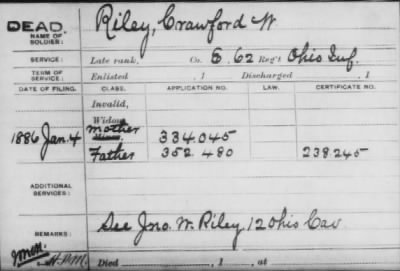 DEAD
NAME OF SOLDIER: Riley, Crawford W.
SERVICE: Late rank, Co. G. 62 Reg't Ohio Inf.
TERM OF SERVICE: Enlisted , 1 Discharged , 1
DATE OF FILING. CLASS. APPLICATION NO. LAW. CERTIFICATE NO.
Invalid,
Widow
1886 Jan. 4 Mother 334.045
Father 352.480 238.245
ADDITIONAL SERVICES:
REMARKS: See Jno. W. Riley, 12 Ohio Cav.
Died , 1 , at